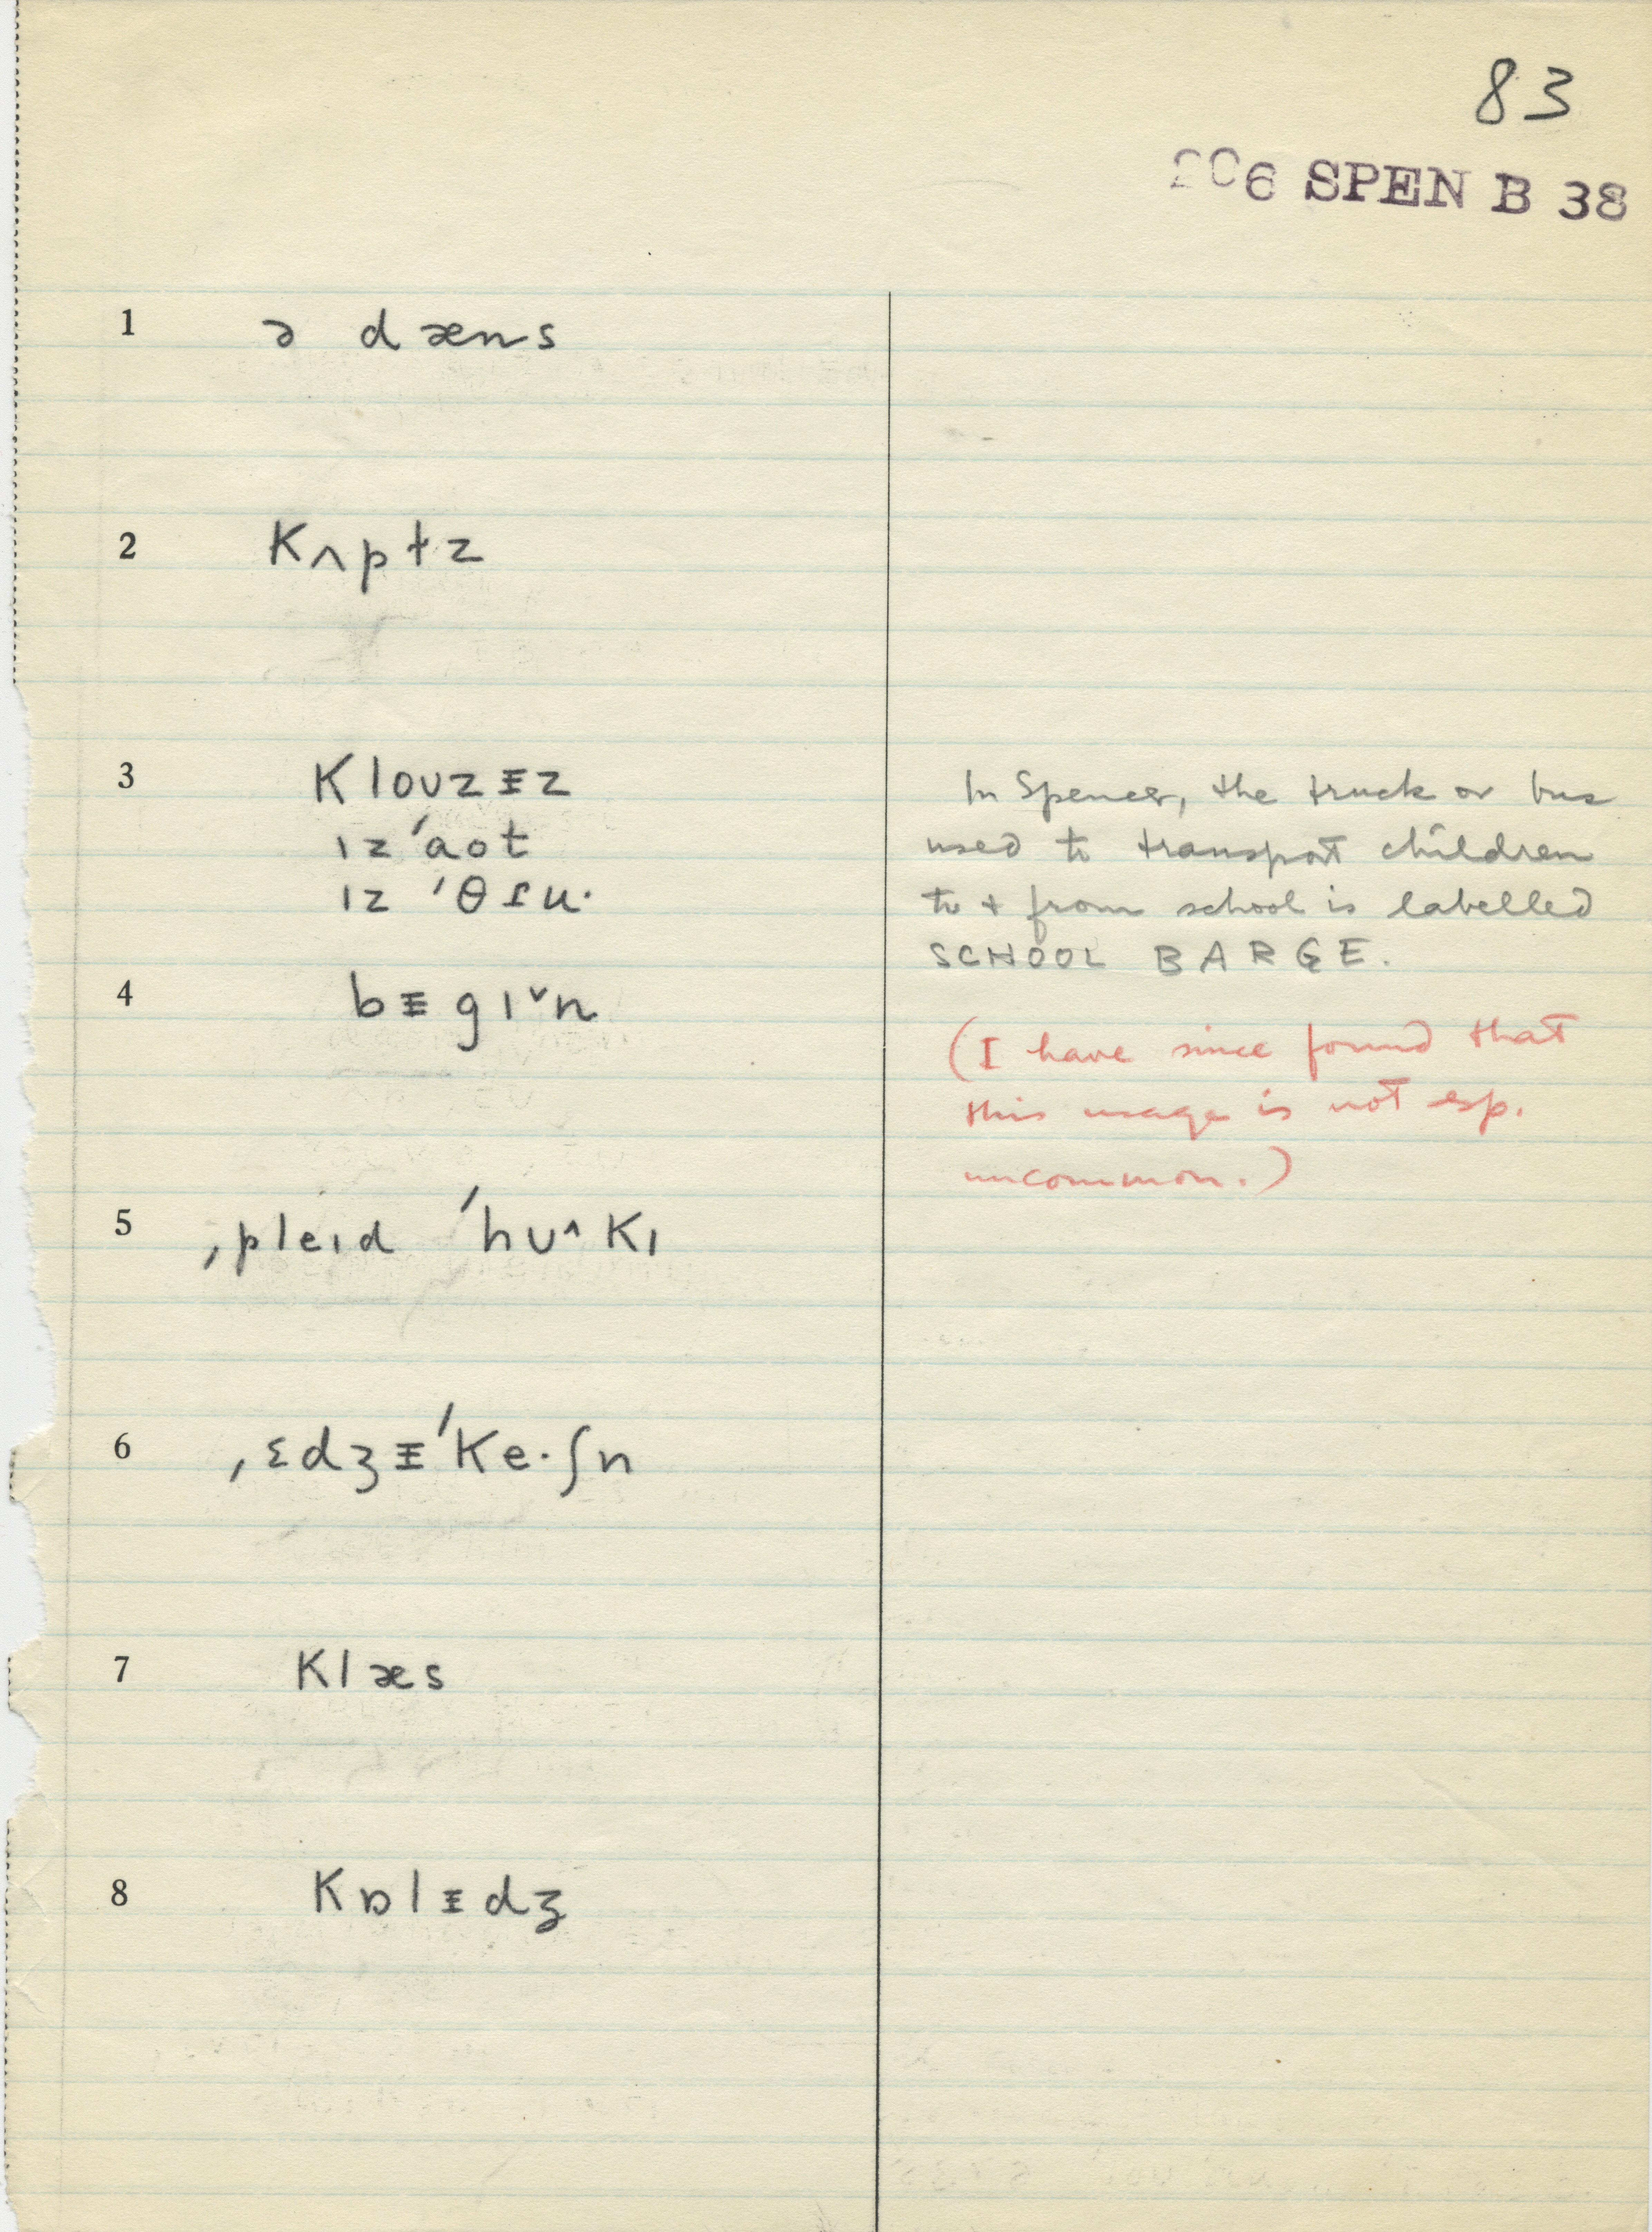 83
206 SPEN B 38
1 ə dæns
2 kʌptɨz
3 klouzɨz
ɪz ˈaot
ɪz ˈθɾu·
In Spencer, the truck or bus
used to transport children
to + from school is labelled
SCHOOL BARGE.
4 bɨgɪ˅n
(I have since found that
this usage is not esp.
uncommon.)
5 ˌpleɪd ˈhʊ^kɪ
6 ˌɛdʒɨˈke·ʃn
7 klæs
8 kɒlɨdʒ